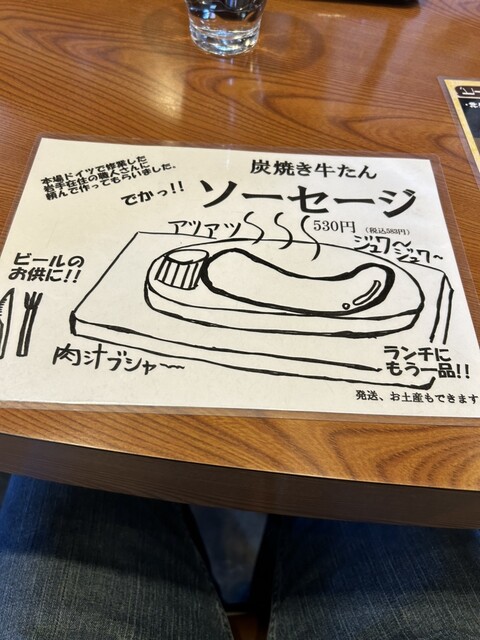 本場ドイツで修業した
岩手在住の職人さんに
頼んで作ってもらいました。
炭焼き牛たん
でかっ!!
ソーセージ
アツアツ
530円
(税込583円)
ジュワ〜
ジュワ〜
ビールの
お供に!!
肉汁ブシャー〜
ランチに
もう一品!!
発送、お土産もできます